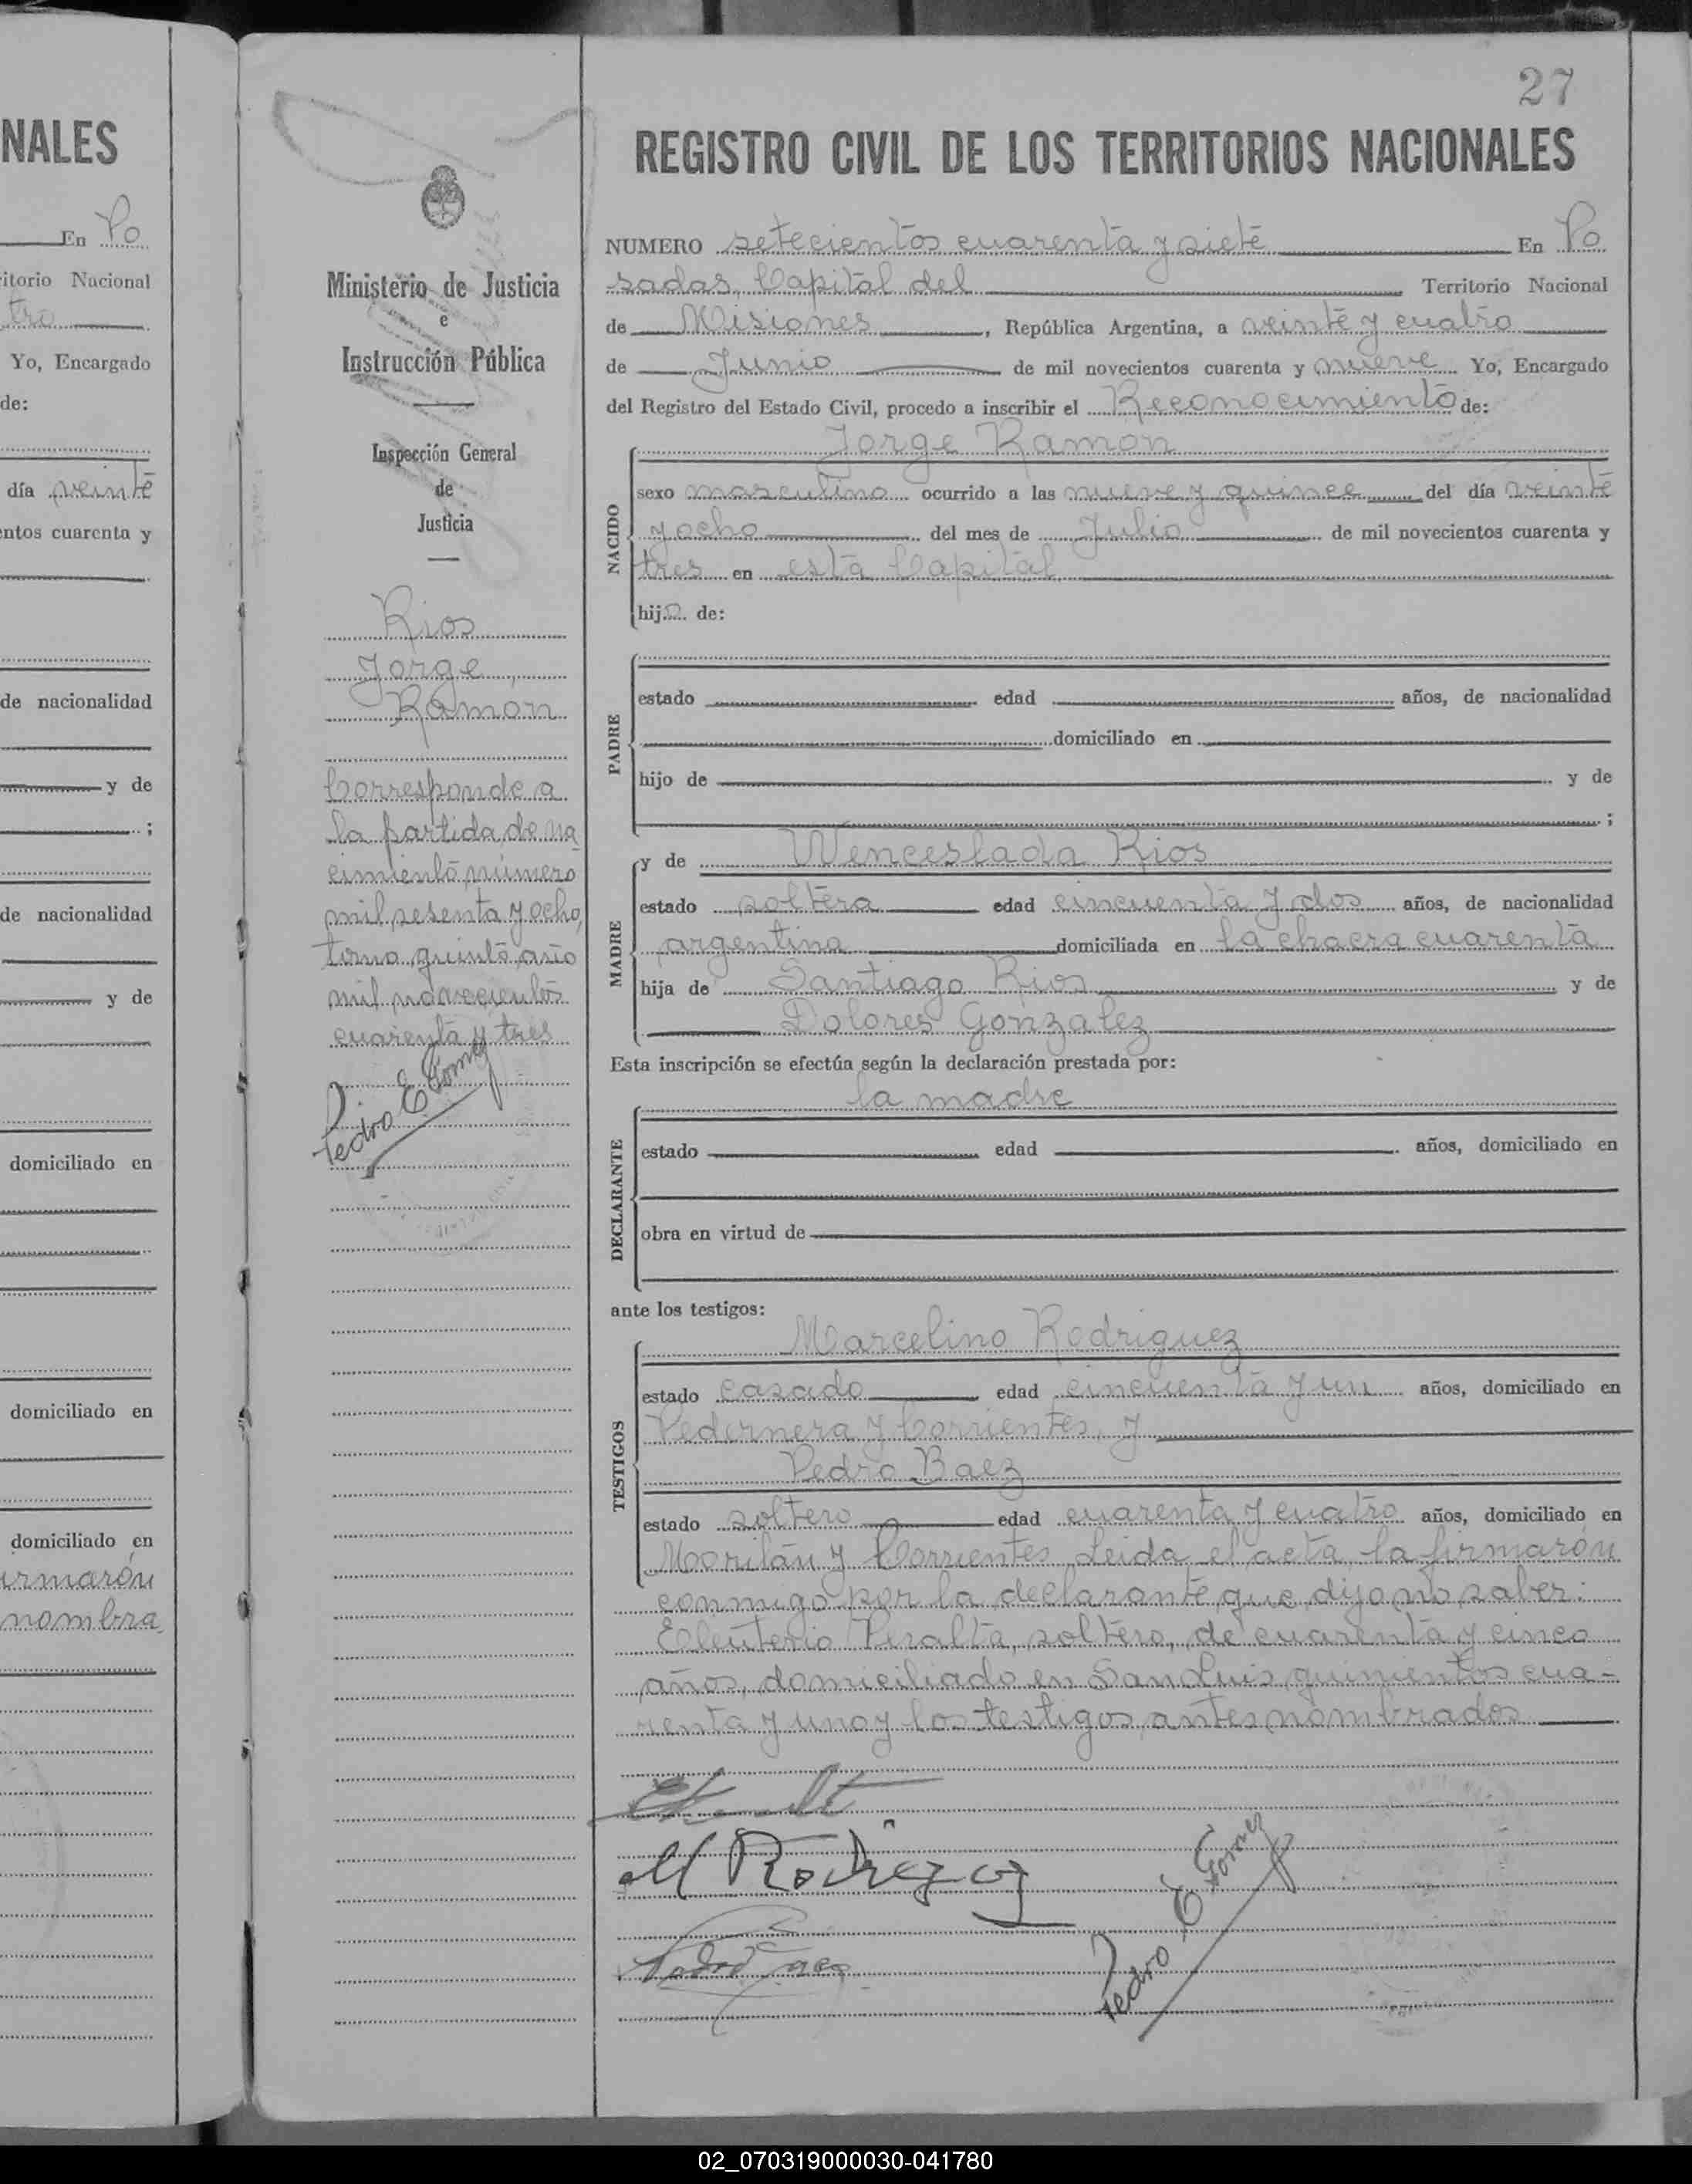 NALES
En Po
itorio Nacional
tro
Yo, Encargado
de:
día veinte
entos cuarenta y
de nacionalidad
y de
;
de nacionalidad
y de
domiciliado en
domiciliado en
domiciliado en
irmarón
nombra
Ministerio de Justicia
e
Instrucción Pública
Inspección General
de
Justicia
Rios
Jorge
Ramón
Corresponde a
la partida de na
cimiento número
mil sesenta y ocho,
tomo quinto año
mil novecientos
cuarenta y tres
Pedro E Gomez
27
REGISTRO CIVIL DE LOS TERRITORIOS NACIONALES
NUMERO setecientos cuarenta y siete En Po
sadas, Capital del Territorio Nacional
de Misiones, República Argentina, a veinte y cuatro
de Junio de mil novecientos cuarenta y nueve Yo, Encargado
del Registro del Estado Civil, procedo a inscribir el Reconocimiento de:
Jorge Ramon
NACIDO
sexo masculino ocurrido a las nueve y quince del día veinte
y ocho del mes de Julio de mil novecientos cuarenta y
tres en esta Capital
hijo de:
PADRE
estado edad años, de nacionalidad
domiciliado en
hijo de y de
;
MADRE
y de Wenceslada Rios
estado soltera edad cincuenta y dos años, de nacionalidad
argentina domiciliada en la chacra cuarenta
hija de Santiago Rios y de
Dolores Gonzalez
Esta inscripción se efectúa según la declaración prestada por:
la madre
DECLARANTE
estado edad años, domiciliado en
obra en virtud de
ante los testigos:
TESTIGOS
Marcelino Rodriguez
estado casado edad cincuenta y un años, domiciliado en
Pedernera y Corrientes, y
Pedro Baez
estado soltero edad cuarenta y cuatro años, domiciliado en
y Corrientes Leida el acta la firmarón
conmigo por la declarante que dijo no saber:
Eleuterio Peralta, soltero, de cuarenta y cinco
años, domiciliado en San Luis quinientos cua-
renta y uno y los testigos antes nombrados
M Rodriguez
Pedro Baez
Pedro E Gomez
02_070319000030-041780